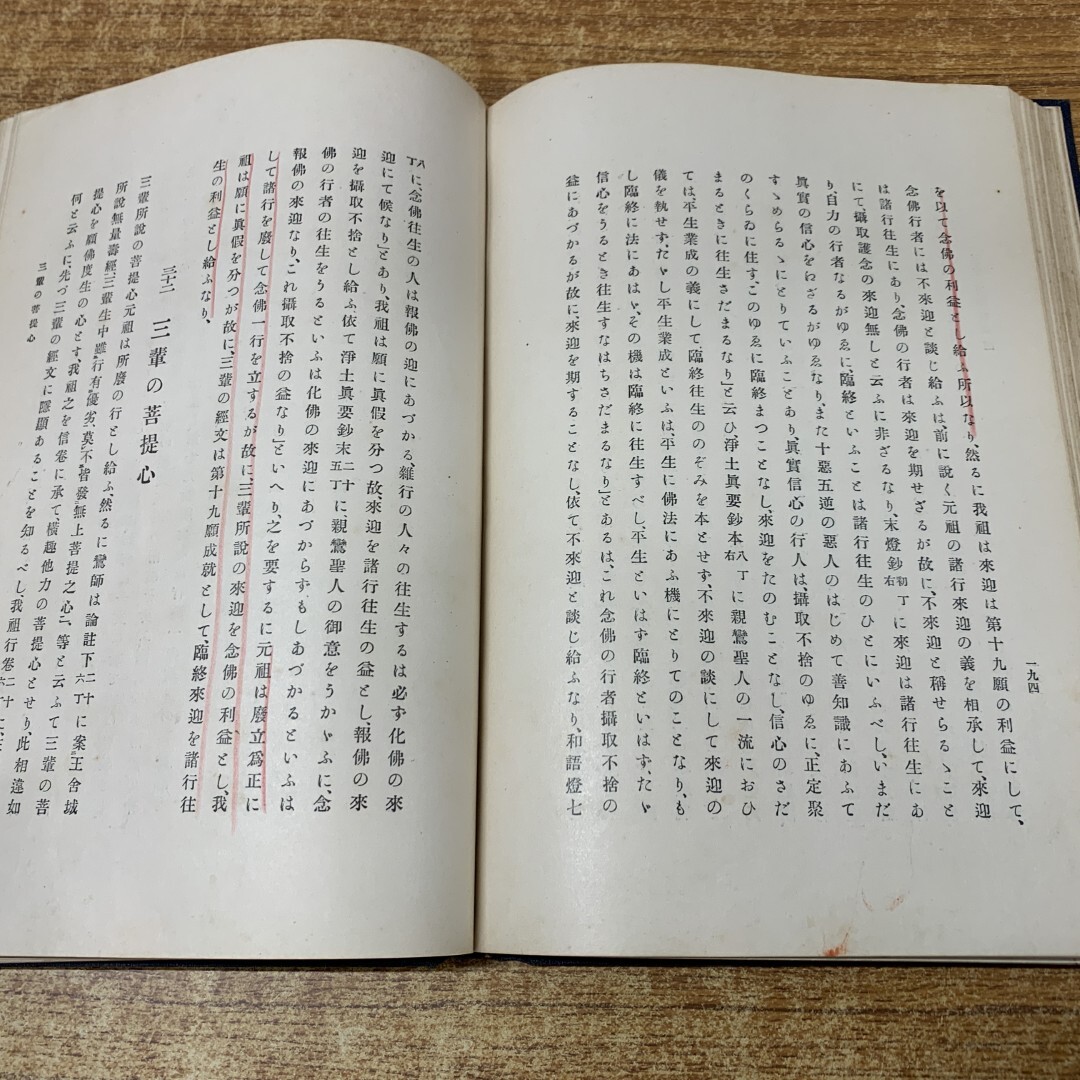 一九四
を以て念佛の利益とし給ふ所以なり、然るに我祖は來迎は第十九願の利益にして、
念佛行者には不來迎と談じ給ふは、前に說く元祖の諸行來迎の義を相承して、來迎
は諸行往生にあり、念佛の行者は來迎を期せざるが故に、不來迎と稱せらるゝこと
にて、攝取護念の來迎無しと云ふに非ざるなり、末燈鈔初丁右に來迎は諸行往生にあ
り、自力の行者なるがゆゑに、臨終といふことは諸行往生のひとにいふべし、いまだ
眞實の信心をゑざるがゆゑなり、また十惡五逆の惡人のはじめて善知識にあふて
すゝめらるゝにとりていふことあり、眞實信心の行人は攝取不捨のゆゑに、正定聚
のくらゐに住す、このゆゑに臨終まつことなし、來迎をたのむことなし、信心のさだ
まるときに往生さだまるなり」と云ひ、淨土眞要鈔本八丁右に親鸞聖人の一流におひ
ては、平生業成の義にして、臨終往生ののぞみを本とせず、不來迎の談にして來迎の
儀を執せず、たゞし平生業成といふは、平生に佛法にあふ機にとりてのことなり、も
し臨終に法にあはゞ、その機は臨終に往生すべし、平生といはず臨終といはず、たゞ
信心をうるとき往生すなはちさだまるなり」とあるは、これ念佛の行者攝取不捨の
益にあづかるが故に、來迎を期することなし、依て不來迎と談じ給ふなり、和語燈七
に、念佛往生の人は報佛の迎にあづかる、雜行の人々の往生するは必ず化佛の來
迎にて候なり」とあり、我祖は願に眞假を分つ故、來迎を諸行往生の益とし、報佛の來
迎を攝取不捨とし給ふ、依て淨土眞要鈔末二十五丁に、親鸞聖人の御意をうかゞふに、念
佛の行者の往生をうるといふは化佛の來迎にあづからず、もしあづかるといふは
報佛の來迎なり、これ攝取不捨の益なり」といへり、之を要するに元祖は廢立爲正に
して諸行を廢して念佛一行を立するが故に、三輩所說の來迎を念佛の利益とし、我
祖は願に眞假を分つが故に、三輩の經文は第十九願成就として、臨終來迎を諸行往
生の利益とし給ふなり、
三十二 三輩の菩提心
三輩所說の菩提心元祖は所廢の行とし給ふ、然るに鸞師は論註下二十六丁に案王舍城
所說無量壽經、三輩生中雖行有優劣、莫不皆發無上菩提之心、等と云ふて三輩の菩
提心を願佛度生の心とす、我祖之を信卷に承て、橫超他力の菩提心とせり、此相違如
何と云ふに先づ三輩の經文に隱顯あることを知るべし、我祖行卷二十
三輩の菩提心